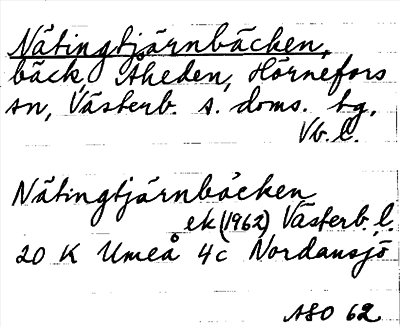 Nätingtjärnbäcken,
bäck, Åheden, Hörnefors
sn, Västerb. s. doms. tg,
Vb. l.
Nätingtjärnbäcken
ek (1962) Västerb. l.
20 K Umeå 4c Nordansjö
ASO 62